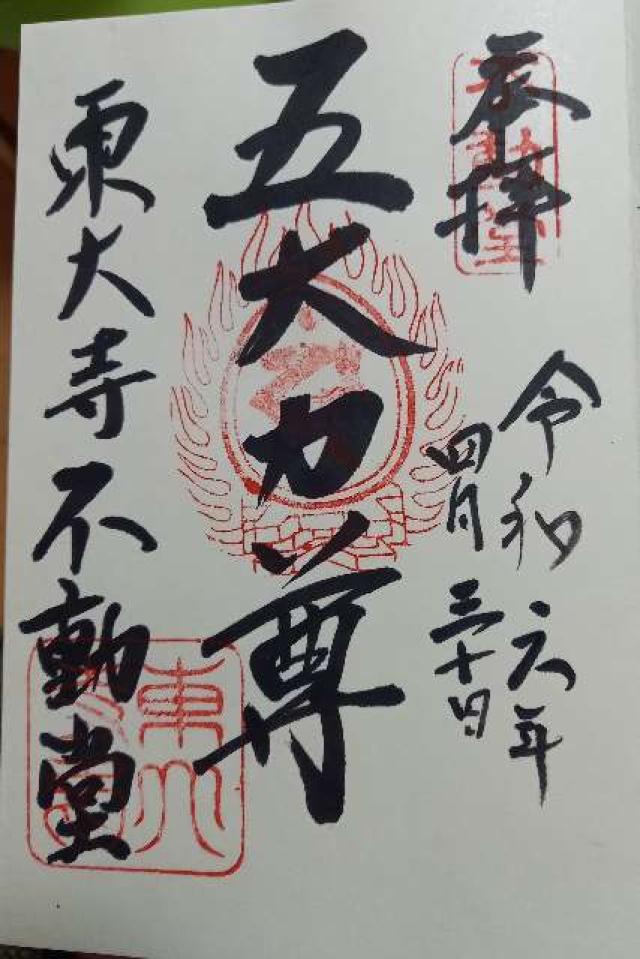 奉拝
令和六年
四月三十日
五大力尊
東大寺不動堂